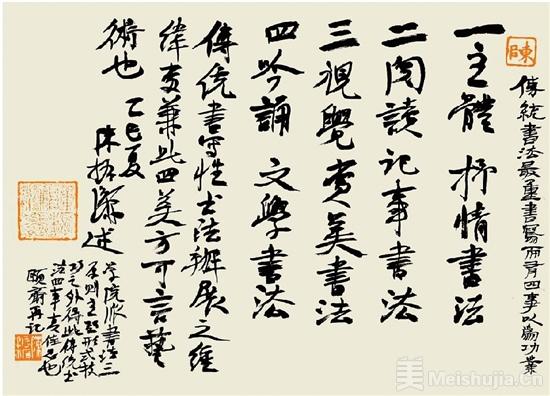 陳
傳統書法最重書寫而有四事以為功業
一主體 抒情書法
二閱讀 記事書法
三視覺 賞美書法
四吟誦 文學書法
傳統書寫性書法辦展之經
緯 交兼此四美方可言藝
術也 乙巳夏
陳振濂述
學院派書法三
原則主題形式技
巧之外得此傳統書
法四事方責任已也
頤齋再記
美 Meishujia.Cn